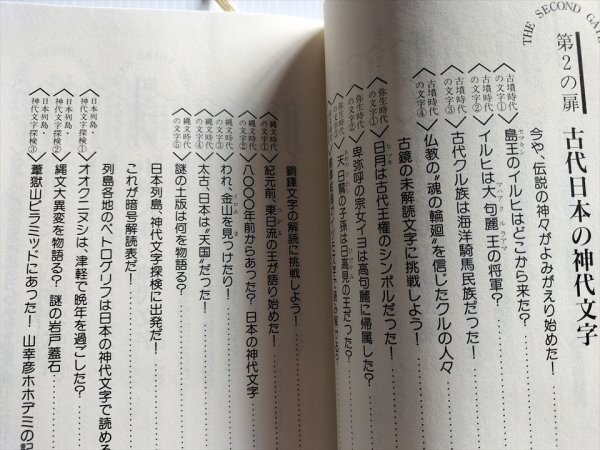 THE SECOND GATE
第2の扉 古代日本の神代文字
今や、伝説の神々がよみがえり始めた!
〈古墳時代の文字①〉島王のイルヒはどこから来た?
〈古墳時代の文字②〉イルヒは大句麗王の将軍?
〈古墳時代の文字③〉古代クル族は海洋騎馬民族だった!
〈古墳時代の文字④〉仏教の〝魂の輪廻〟を信じたクルの人々
古鏡の未解読文字に挑戦しよう!
〈弥生時代の文字①〉日月は古代王権のシンボルだった!
〈弥生時代の文字②〉卑弥呼の宗女イヨは高句麗に帰属した?
〈弥生時代の文字③〉天日矛の子孫は日高見の王だった?
銅鐸文字の解読に挑戦しよう!
〈縄文時代の文字①〉紀元前、東日流の王が語り始めた!
〈縄文時代の文字②〉八〇〇〇年前からあった?日本の神代文字
〈縄文時代の文字③〉われ、金山を見つけたり!
〈縄文時代の文字④〉太古、日本は〝天国〟だった!
〈縄文時代の文字⑤〉謎の土版は何を物語る?
日本列島、神代文字探検に出発だ!
これが暗号解読表だ!
列島各地のペトログリフは日本の神代文字で読める
〈日本列島・神代文字探検①〉オオクニヌシは、津軽で晩年を過ごした?
〈日本列島・神代文字探検②〉縄文大異変を物語る?謎の岩戸蓋石
〈日本列島・神代文字探検③〉葦嶽山ピラミッドにあった!山幸彦ホホデミの記